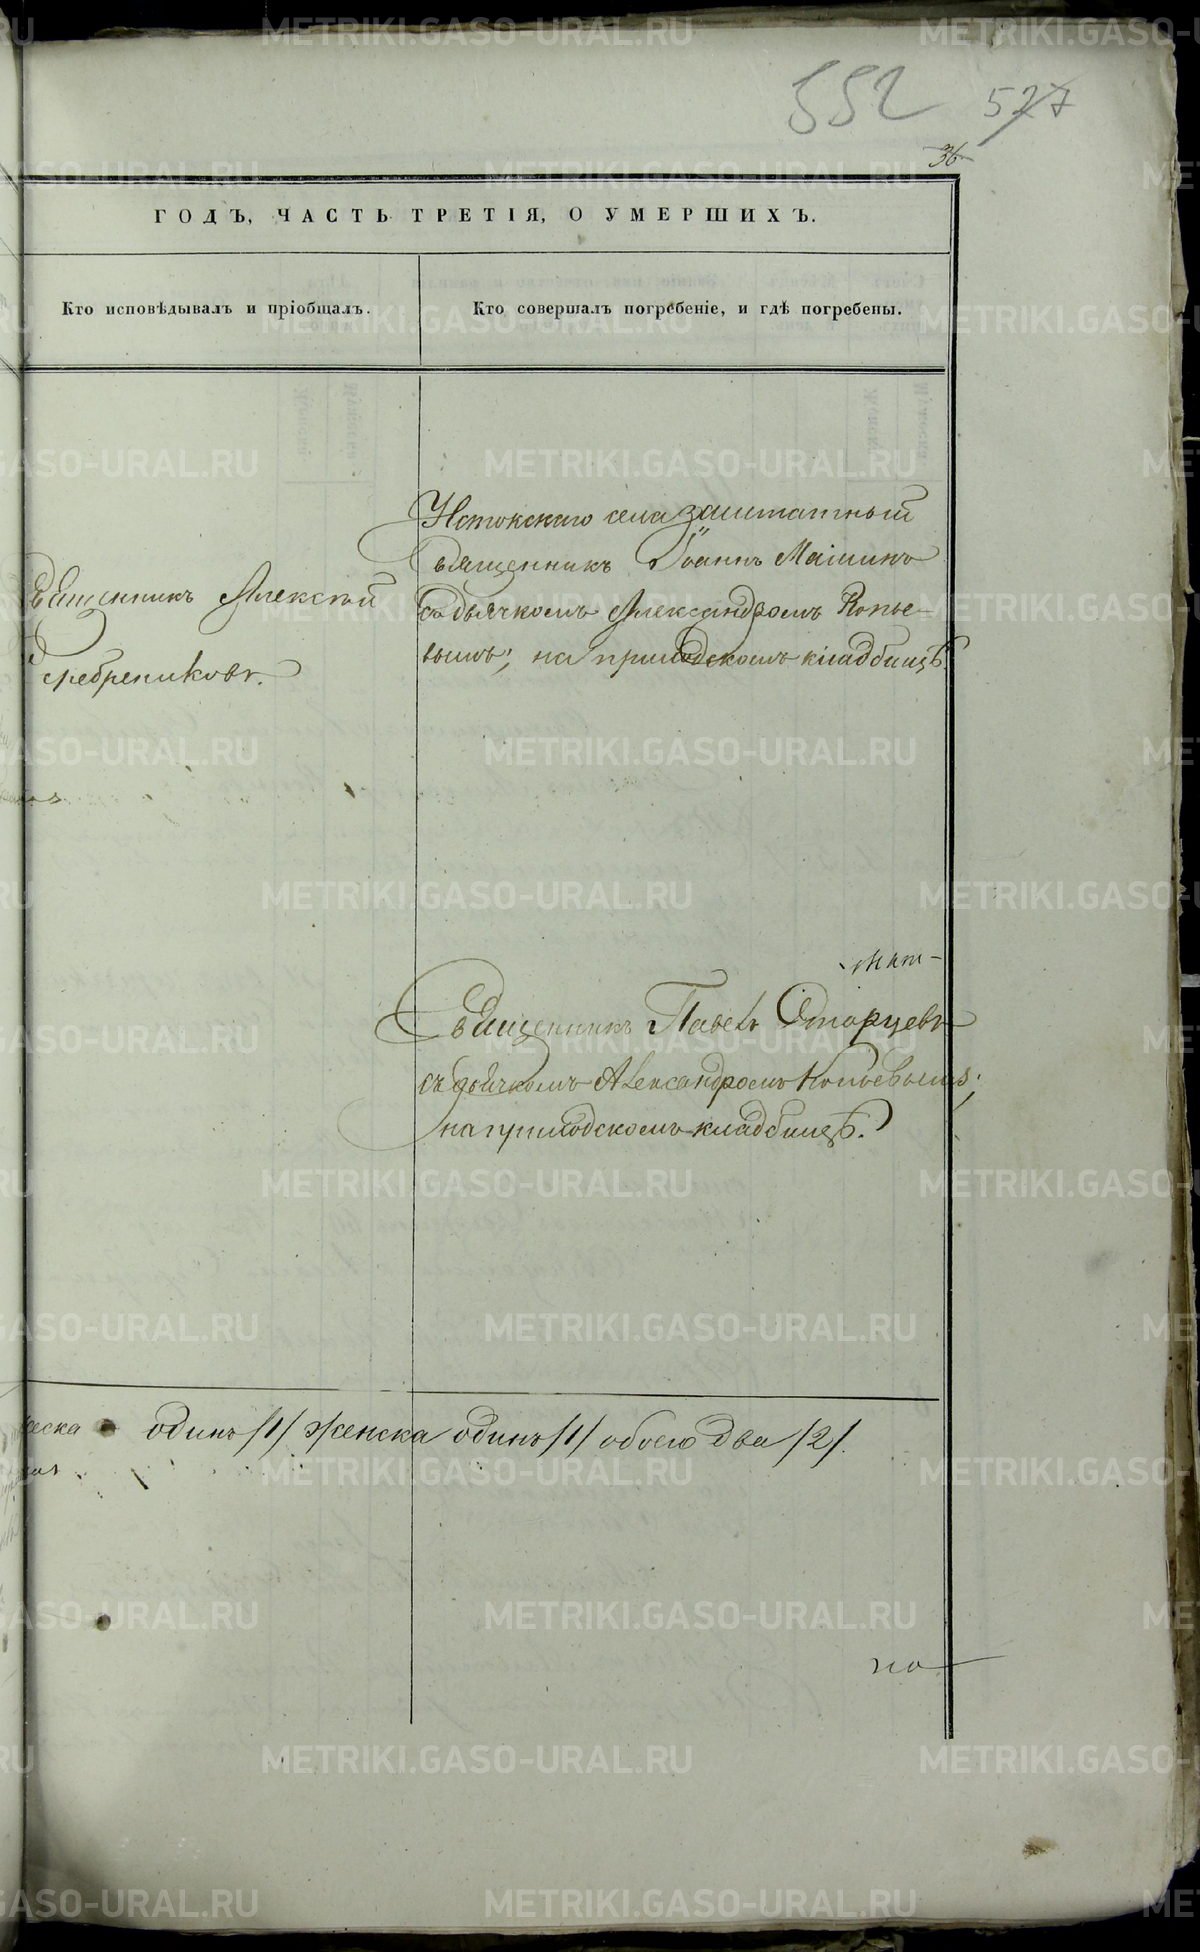 552 527
36
ГОДЪ, ЧАСТЬ ТРЕТІЯ, О УМЕРШИХЪ.
Кто исповѣдывалъ и пріобщалъ.
Кто совершалъ погребеніе, и гдѣ погребены.
Священникъ Алексѣй
Серебрениковъ.
Истокскаго села заштатный
Священникъ Іоаннъ Маминъ
съ дьячкомъ Александромъ Копье-
вымъ; на приходскомъ кладбищѣ
Священникъ Павелъ Старцевъ
съ дьячкомъ Александромъ Копьевымъ;
на приходскомъ кладбищѣ.
одинъ /1/ женска одинъ /1/ обоего два /2/.
по
METRIKI.GASO-URAL.RU